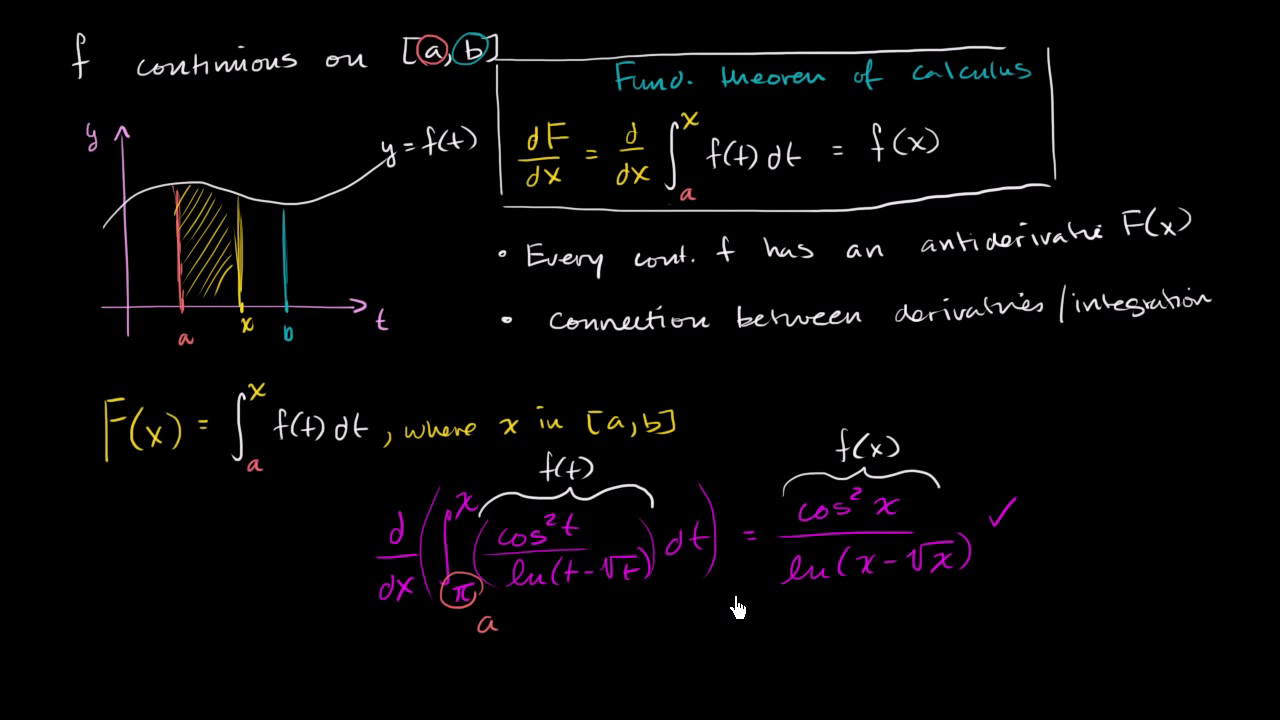 f continuous on [a, b]
Fund. theorem of calculus
dF/dx = d/dx ∫_a^x f(t) dt = f(x)
y
y = f(t)
a
x
b
t
• Every cont. f has an antiderivative F(x)
• Connection between derivatives/integration
F(x) = ∫_a^x f(t) dt, where x in [a, b]
f(t)
f(x)
d/dx (∫_π^x (cos²t / ln(t-√t)) dt) = cos²x / ln(x-√x) ✓
a